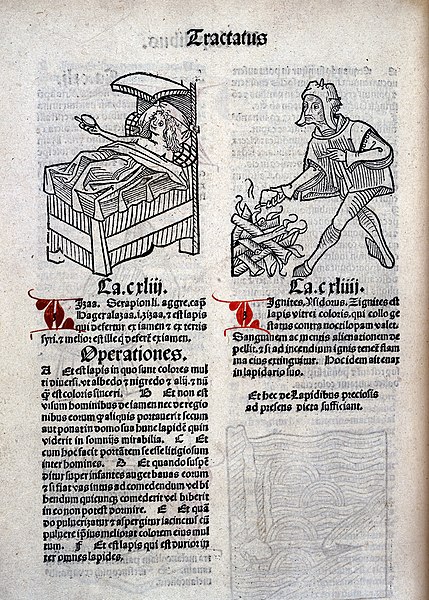 Tractatus
Ca. cxliij.
Izaa. Serapion li. aggre. cap̄
Hager alazaa. i. zizaa. ē est lapis
qui defertur ex iamen ⁊ ex terris
syri. ⁊ melior est ille q̄ defert̄ ex iamen.
Operationes.
A Et est lapis in quo sunt colores mul
ti diuersi. vt albedo ⁊ nigredo ⁊ alij. ⁊ nū
q̄ȝ est coloris sinceri. B Et non est
visum hominibus de iamen nec de regio
nibus eorum ꝙ aliquis portauerit secum
aut ponat in domo sua hunc lapidē quin
viderit in somnijs mirabilia. C Et
cum hoc facit portātem se esse litigiosum
inter homines. D Et quando suspē
ditur super infantes auget bauas eorum
⁊ si fiat vas intus ad comedendum vel bi
bendum quicunqȝ comederit vel biberit
in eo non potest dormire. E Et quā
do puluerizatur ⁊ aspergitur iacinctus cū
puluere ipsius meliorat colorem eius mul
tum. F Et est lapis qui est durior in
ter omnes lapides.
Ca. cxliiij.
Ignites. Ysidorus. Zignites est
lapis vitrei coloris. qui collo ge
status contra noctilopam valet.
Sanguinem ac mentis alienationem de
pellit. ⁊ si ad incendium ignis tenet̄ flam
ma eius extinguitur. Hoc idem aitenax
in lapidario suo.
Et hec de Lapidibus preciosis
ad presens dicta sufficiant.